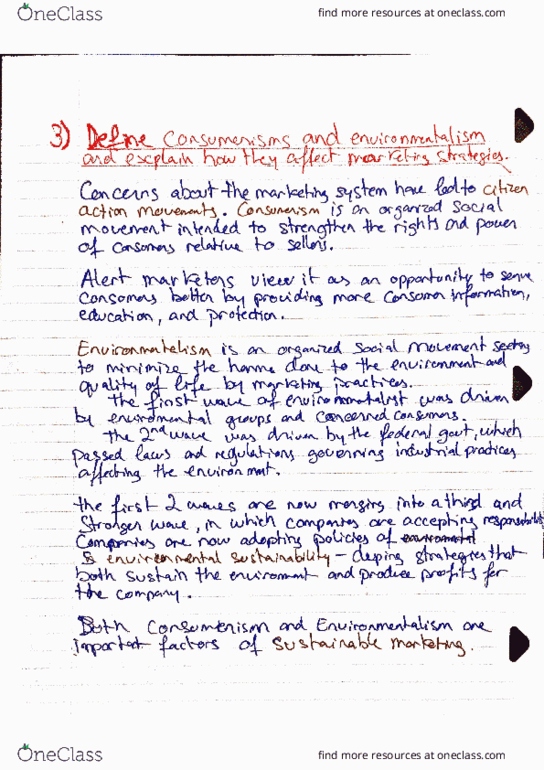 OneClass
find more resources at oneclass.com
3) Define Consumerisms and environmentalism
and explain how they affect marketing strategies.
Concerns about the marketing system have led to citizen
action movements. Consumerism is an organized social
movement intended to strengthen the rights and power
of consomers relative to sellers.
Alert marketers view it as an opportunity to serve
consomers better by providing more consomer information,
education, and protection.
Environmatelism is an organized social movement seeking
to minimize the harms done to the environment and
quality of life by marketing practices.
the first wave of environmentalist was driven
by enviromental groups and concerned consumers.
the 2nd wave was driven by the federal govt, which
passed laws and regulations governing industrial practices
affecting the environment.
the first 2 waves are now merging into a third and
stronger wave, in which companies are accepting responsibility
Companies are now adopting policies of
environmental sustainability - deping strategies that
both sustain the enviroment and produce profits for
the company.
Both Consumerism and Environmentalism are
important factors of sustainable marketing.
OneClass
find more resources at oneclass.com